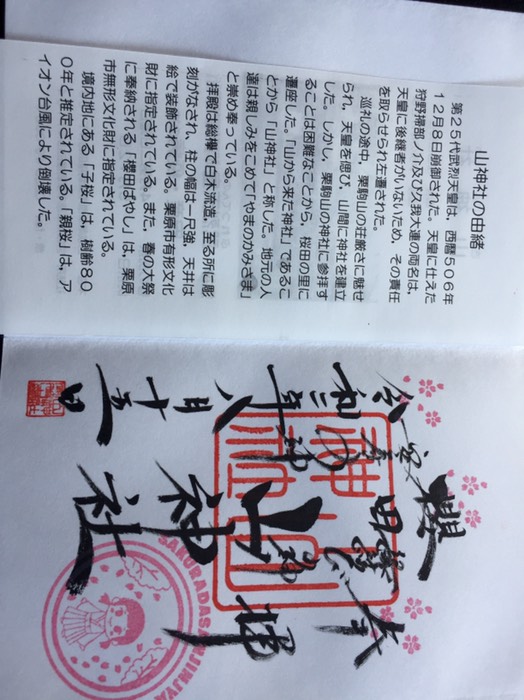 山神社の由緒
第25代武烈天皇は、西暦506年
12月8日崩御された。天皇に仕えた
狩野掃部ノ介及び久我大連の両名は、
天皇に後継者がいないため、その責任
を取らせられ左遷された。
巡礼の途中、栗駒山の荘厳さに魅せ
られ、天皇を偲び、山間に神社を建立
した。しかし、栗駒山の神社に参拝す
ることは困難なことから、桜田の里に
遷座した。「山から来た神社」であるこ
とから「山神社」と称した。地元の人
達は親しみをこめて「やまのかみさま」
と崇め奉っている。
拝殿は総欅で白木流造、至る所に彫
刻がなされ、柱の幅は一尺強、天井は
絵で装飾されている。栗原市有形文化
財に指定されている。また、春の大祭
に奉納される「櫻田ばやし」は、栗原
市無形文化財に指定されている。
境内地にある「子桜」は、樹齢80
0年と推定されている。「親桜」は、ア
イオン台風により倒壊した。
奉拝
櫻田
山神社
令和二年八月十五日
SAKURADASANJINJYA